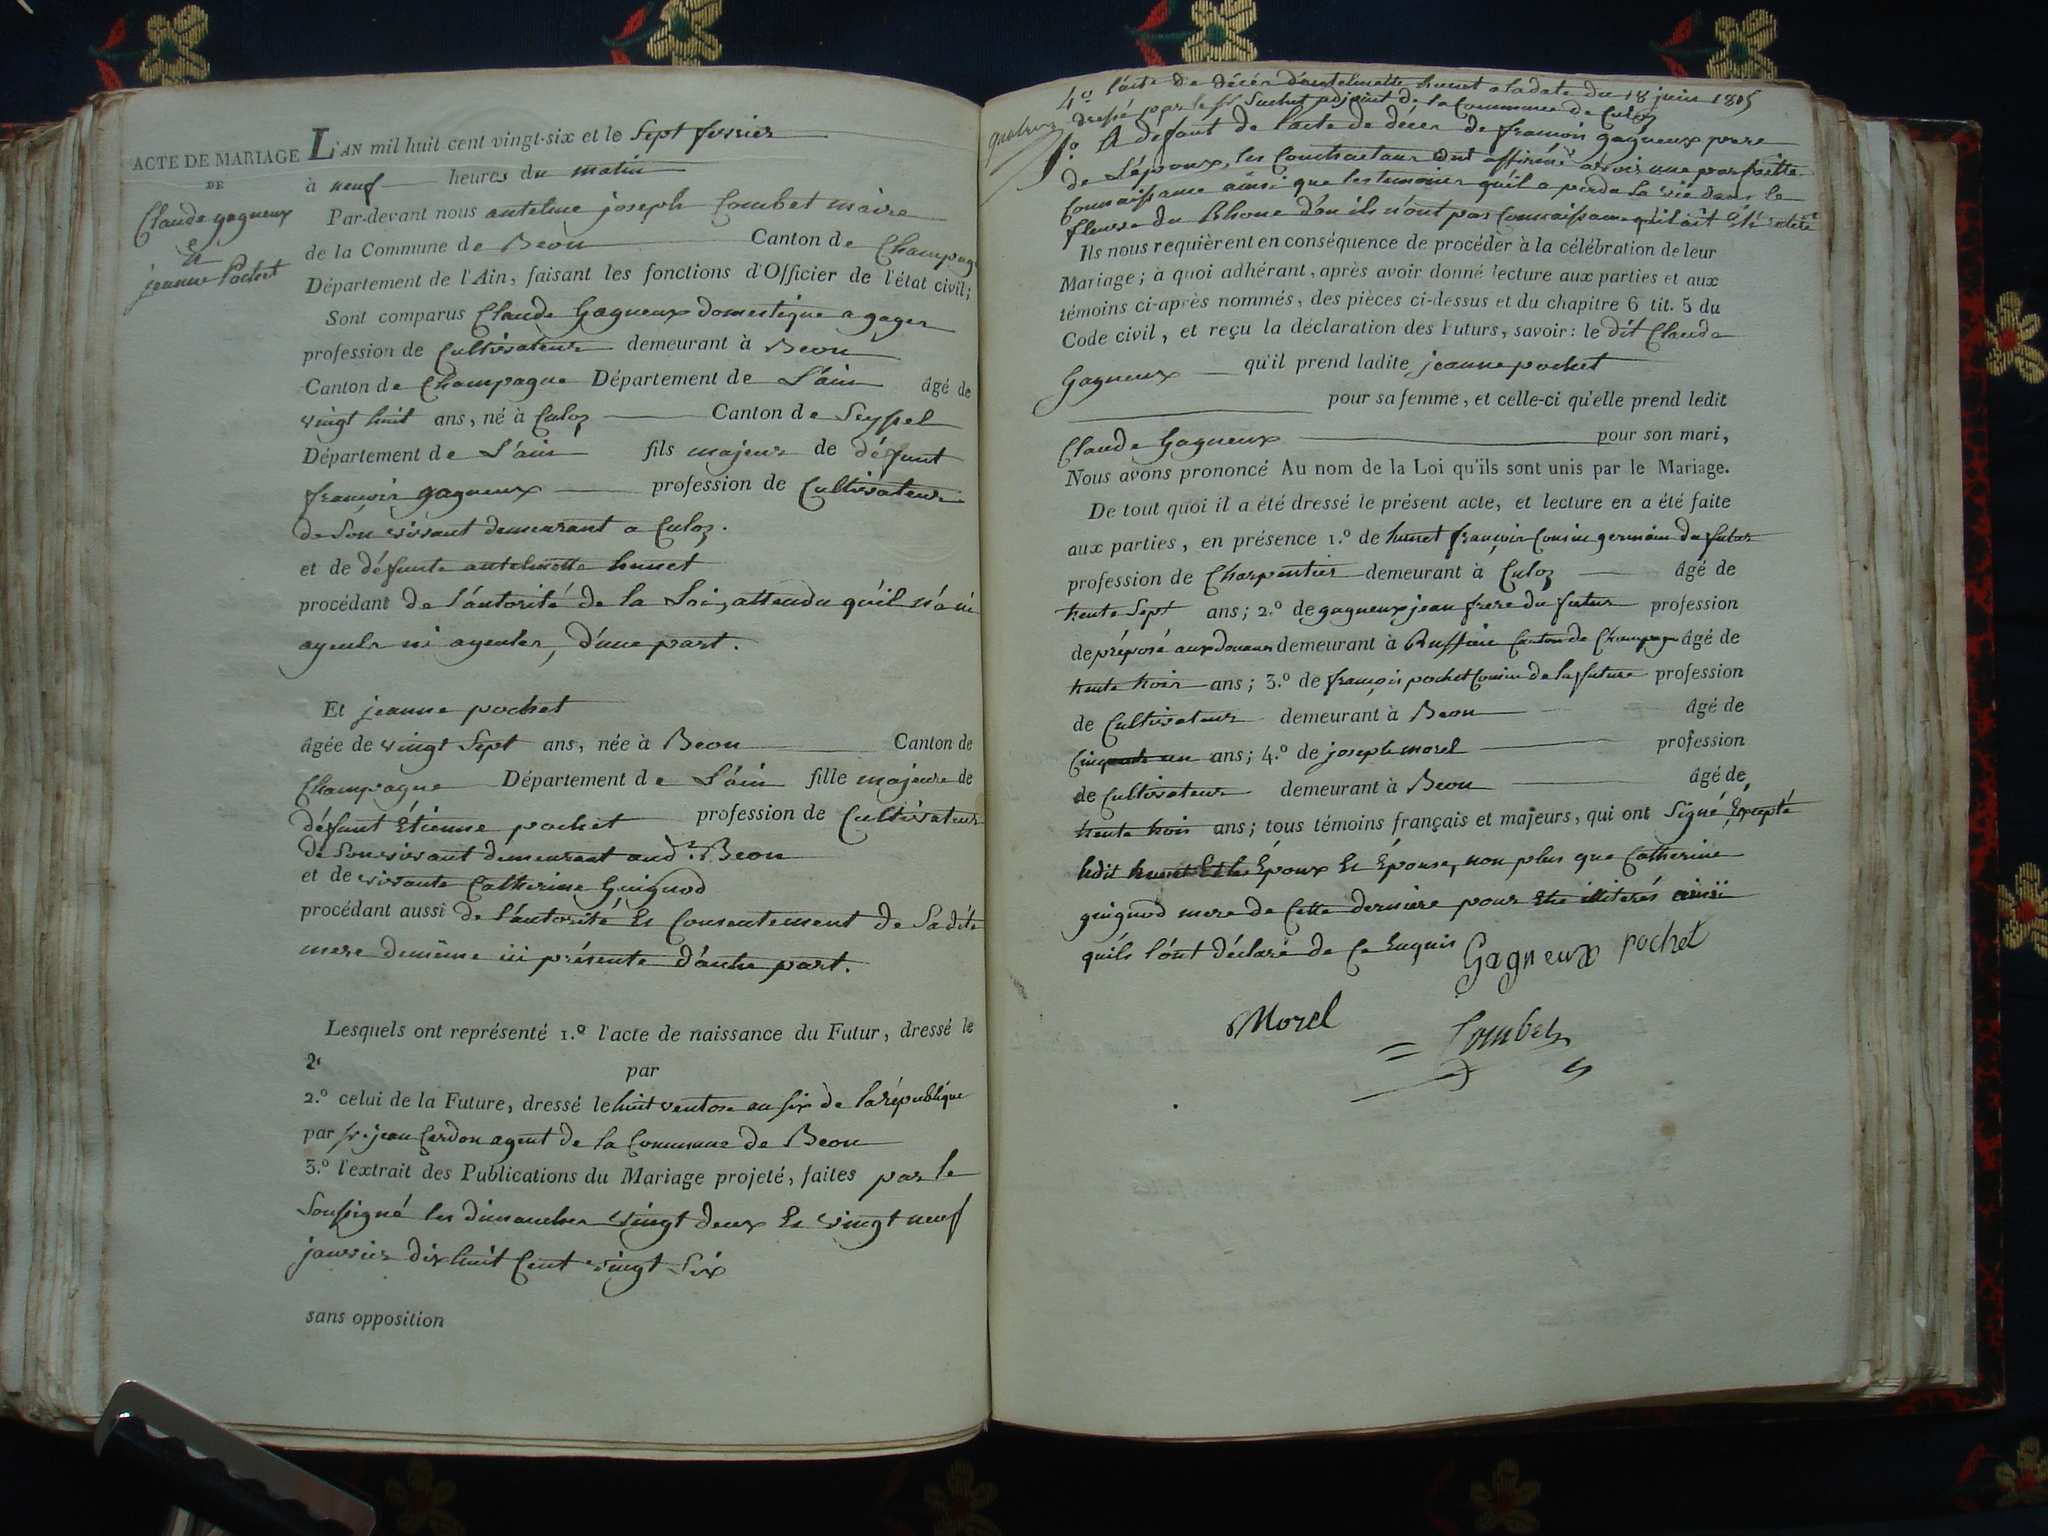 ACTE DE MARIAGE
DE
Claude gagneux
et
jeanne Pochet
L'AN mil huit cent vingt-six et le Sept fevrier
à neuf heures du matin
Par-devant nous antelme joseph Combet maire
de la Commune de Beon Canton de Champagne
Département de l'Ain, faisant les fonctions d'Officier de l'état civil;
Sont comparus Claude Gagneux domestique a gages
profession de Cultivateur demeurant à Beon
Canton de Champagne Département de L'ain âgé de
vingt huit ans, né à Culoz Canton de Seyssel
Département de L'ain fils majeur de défunt
françois gagneux profession de Cultivateur
de Son vivant demeurant a Culoz.
et de défunte antelmette hunet
procédant de l'autorité de la Loi, attendu qu'il n'a ni
ayeuls ni ayeules, d'une part.
Et jeanne pochet
âgée de vingt Sept ans, née à Beon Canton de
Champagne Département de L'ain fille majeure de
défunt Étienne pochet profession de Cultivateur
de Son vivant demeurant aud.t Beon
et de vivante Catherine Guignod
procédant aussi de l'autorité Et Consentement de Sadite
mere ici présente d'autre part.
Lesquels ont représenté 1.º l'acte de naissance du Futur, dressé le
par
2.º celui de la Future, dressé le huit ventose an six de la république
par sr. jean Cerdon agent de la Commune de Beon
3.º l'extrait des Publications du Mariage projeté, faites par le
Soussigné les dimanches vingt deux Et vingt neuf
janvier dix huit Cent vingt Six
sans opposition
4.º l'acte de décès d'antelmette hunet a la date du 18 juin 1815
dressé par le sr. Suchet adjoint de la Commune de Culoz
5.º A défaut de l'acte de décès de françois gagneux pere
de L'époux, les Contractans ont affirmé avoir une parfaite
Connaissance ainsi que les temoins qu'il a perdu la vie dans le
fleuve du Rhone d'ou ils n'ont pas Connaissance qu'il ait été retiré
Ils nous requièrent en conséquence de procéder à la célébration de leur
Mariage; à quoi adhérant, après avoir donné lecture aux parties et aux
témoins ci-après nommés, des pièces ci-dessus et du chapitre 6 tit. 5 du
Code civil, et reçu la déclaration des Futurs, savoir: le dit Claude
Gagneux qu'il prend ladite jeanne pochet
pour sa femme, et celle-ci qu'elle prend ledit
Claude Gagneux pour son mari,
Nous avons prononcé Au nom de la Loi qu'ils sont unis par le Mariage.
De tout quoi il a été dressé le présent acte, et lecture en a été faite
aux parties, en présence 1.º de hunet françois Cousin germain du futur
profession de Charpentier demeurant à Culoz âgé de
trente Sept ans; 2.º de gagneux jean frere du futur profession
de préposé aux douanes demeurant à Ruffieu Canton de Champagne âgé de
trente trois ans; 3.º de françois pochet Cousin de la future profession
de Cultivateur demeurant à Beon âgé de
Cinquante un ans; 4.º de joseph morel profession
de Cultivateur demeurant à Beon âgé de
trente trois ans; tous témoins français et majeurs, qui ont Signé Excepté
ledit hunet Et les Époux Et Épouse, non plus que Catherine
guignod mere de Cette derniere pour Etre illiterés ainsi
qu'ils l'ont déclaré de Ce Enquis Gagneux pochet
Morel
Combet